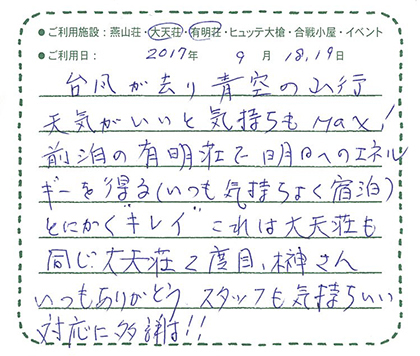 ●ご利用施設：燕山荘・大天荘・有明荘・ヒュッテ大槍・合戦小屋・イベント
●ご利用日： 2017年 9月 18,19日
台風が去り青空の山行
天気がいいと気持ちもMAX!
前泊の有明荘で明日へのエネル
ギーを得る(いつも気持ちよく宿泊)
とにかく"キレイ"これは大天荘も
同じ。大天荘2度目、榊さん
いつもありがとう スタッフも気持ちいい
対応に多謝!!